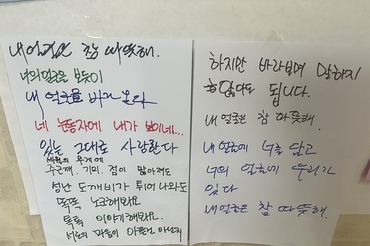 내 얼굴은 참 따뜻해.
너의 얼굴을 보듯이
내 얼굴을 바라본다
네 눈동자에 내가 보이네...
있는 그대로 사랑한다
세월의 무게에
주근깨, 기미, 점이 많아져도
성난 도깨비가 튀어나와도
똑똑 노크해봐요
톡톡 이야기해봐요.
하지만 바라보며 말하지
않아도 됩니다.
내 얼굴은 참 따뜻해.
내 얼굴에 너를 담고
너의 얼굴에 우리가
있다
내 얼굴은 참 따뜻해.